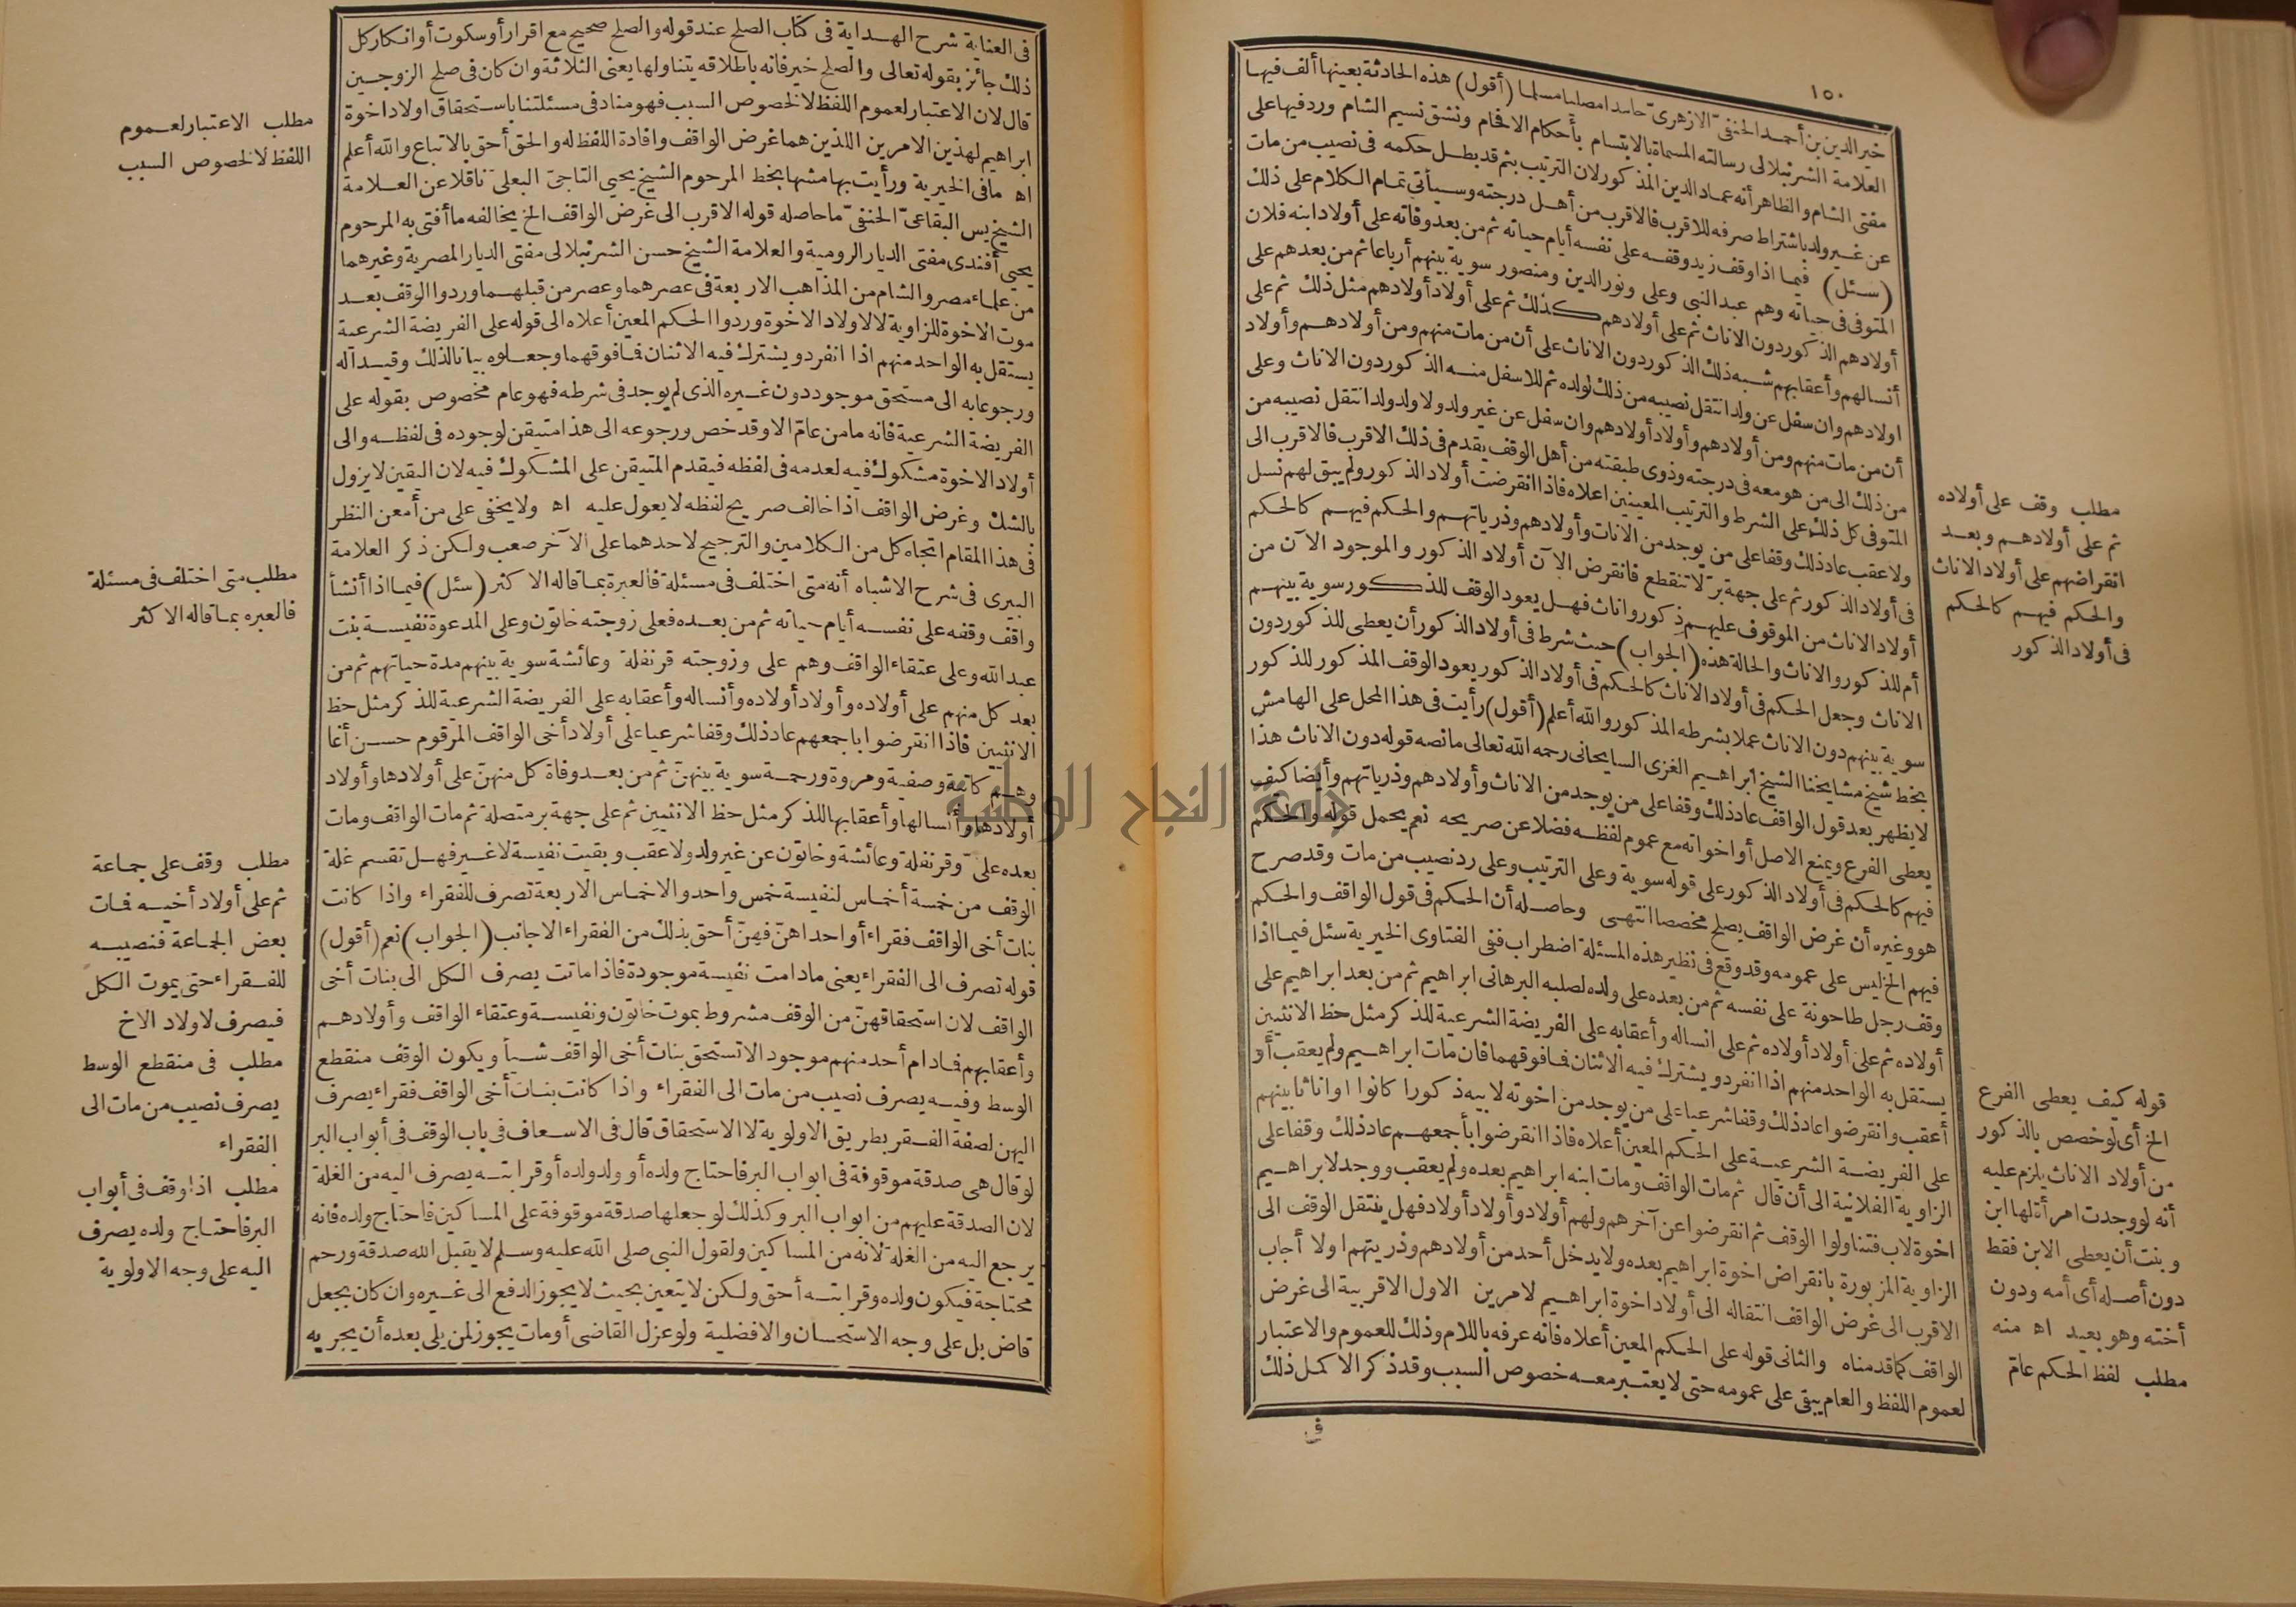 ١٥٠
خير الدين بن أحمد الحنفى الازهرى حامدا مصليا مسلما (أقول) هذه الحادثة بعينها ألف فيها
العلامة الشرنبلالى رسالته المسماة بالابتسام بأحكام الافحام ونشق نسيم الشام ورد فيها على
مفتى الشام والظاهر أنه عماد الدين المذكور لان الترتيب بثم قد بطل حكمه فى نصيب من مات
عن غير ولد باشتراط صرفه للاقرب فالاقرب من أهل درجته وسيأتى تمام الكلام على ذلك
(سئل) فيما اذا وقف زيد وقفه على نفسه أيام حياته ثم من بعد وفاته على أولاد ابنه فلان
المتوفى فى حياته وهم عبد النبى وعلى ونور الدين ومنصور سوية بينهم أرباعا ثم من بعدهم على
أولادهم الذكور دون الاناث ثم على أولادهم كذلك ثم على أولاد أولادهم مثل ذلك ثم على
أنسالهم وأعقابهم شبه ذلك الذكور دون الاناث على أن من مات منهم ومن أولادهم وأولاد
اولادهم وان سفل عن ولد انتقل نصيبه من ذلك لولده ثم للاسفل منه الذكور دون الاناث وعلى
أن من مات منهم ومن أولادهم وأولاد أولادهم وان سفل عن غير ولد ولا ولد ولد انتقل نصيبه من
من ذلك الى من هو معه فى درجته وذوى طبقته من أهل الوقف يقدم فى ذلك الاقرب فالاقرب الى
المتوفى كل ذلك على الشرط والترتيب المعينين اعلاه فاذا انقرضت أولاد الذكور ولم يبق لهم نسل
ولا عقب عاد ذلك وقفا على من يوجد من الاناث وأولادهم وذرياتهم والحكم فيهم كالحكم
فى أولاد الذكور ثم على جهة بر لا تنقطع فانقرض الآن أولاد الذكور والموجود الآن من
أولاد الاناث من الموقوف عليهم ذكور واناث فهل يعود الوقف للذكور سوية بينهم
أم للذكور والاناث والحالة هذه (الجواب) حيث شرط فى أولاد الذكور أن يعطى للذكور دون
الاناث وجعل الحكم فى أولاد الاناث كالحكم فى أولاد الذكور يعود الوقف المذكور للذكور
سوية بينهم دون الاناث عملا بشرطه المذكور والله أعلم (أقول) رأيت فى هذا المحل على الهامش
بخط شيخ مشايخنا الشيخ ابراهيم الغزى السايحانى رحمه الله تعالى ما نصه قوله دون الاناث هذا
لا يظهر بعد قول الواقف عاد ذلك وقفا على من يوجد من الاناث وأولادهم وذرياتهم وأيضا كيف
يعطى الفرع ويمنع الاصل أو اخواته مع عموم لفظه فضلا عن صريحه نعم يحمل قوله والحكم
فيهم كالحكم فى أولاد الذكور على قوله سوية وعلى الترتيب وعلى رد نصيب من مات وقد صرح
هو وغيره أن غرض الواقف يصلح مخصصا انتهى وحاصله أن الحكم فى قول الواقف والحكم
فيهم الخ ليس على عمومه وقد وقع فى نظير هذه المسئلة اضطراب ففى الفتاوى الخيرية سئل فيما اذا
وقف رجل طاحونة على نفسه ثم من بعده على ولده لصلبه البرهانى ابراهيم ثم من بعد ابراهيم على
أولاده ثم على أولاد أولاده ثم على انساله وأعقابه على الفريضة الشرعية للذكر مثل حظ الانثيين
يستقل به الواحد منهم اذا انفرد ويشترك فيه الاثنان فما فوقهما فان مات ابراهيم ولم يعقب أو
أعقب وانقرضوا عاد ذلك وقفا شرعيا على من يوجد من اخوته لابيه ذكورا كانوا او اناثا بينهم
على الفريضة الشرعية على الحكم المعين أعلاه فاذا انقرضوا بأجمعهم عاد ذلك وقفا على
الزاوية الفلانية الى أن قال ثم مات الواقف ومات ابنه ابراهيم بعده ولم يعقب ووجد لابراهيم
اخوة لاب فتناولوا الوقف ثم انقرضوا عن آخرهم ولهم أولاد وأولاد أولاد فهل ينتقل الوقف الى
الزاوية المزبورة بانقراض اخوة ابراهيم بعده ولا يدخل أحد من أولادهم وذريتهم اولا أجاب
الاقرب الى غرض الواقف انتقاله الى أولاد اخوة ابراهيم لامرين الاول الاقربية الى غرض
الواقف كما قدمناه والثانى قوله على الحكم المعين أعلاه فانه عرفه باللام وذلك للعموم والاعتبار
لعموم اللفظ والعام يبقى على عمومه حتى لا يعتبر معه خصوص السبب وقد ذكر الاكمل ذلك
فى
مطلب وقف على أولاده
ثم على أولادهم وبعد
انقراضهم على أولاد الاناث
والحكم فيهم كالحكم
فى أولاد الذكور
قوله كيف يعطى الفرع
الخ أى لو خصص بالذكور
من أولاد الاناث يلزم عليه
أنه لو وجدت امرأة لها ابن
وبنت أن يعطى الابن فقط
دون أصله أى أمه ودون
أخته وهو بعيد اه منه
مطلب لفظ الحكم عام
فى العناية شرح الهداية فى كتاب الصلح عند قوله والصلح صحيح مع اقرار أو سكوت أو انكار كل
ذلك جائز بقوله تعالى والصلح خير فانه باطلاقه يتناولها يعنى الثلاثة وان كان فى صلح الزوجين
قال لان الاعتبار لعموم اللفظ لا لخصوص السبب فهو مناد فى مسئلتنا باستحقاق اولاد اخوة
ابراهيم لهذين الامرين اللذين هما غرض الواقف وافادة اللفظ له والحق أحق بالاتباع والله أعلم
اه ما فى الخيرية ورأيت بهامشها بخط المرحوم الشيخ يحيى التاجى البعلى ناقلا عن العلامة
الشيخ يس البقاعى الحنفى ما حاصله قوله الاقرب الى غرض الواقف الخ يخالفه ما أفتى به المرحوم
يحيى أفندى مفتى الديار الرومية والعلامة الشيخ حسن الشرنبلالى مفتى الديار المصرية وغيرهما
من علماء مصر والشام من المذاهب الاربعة فى عصرهما وعصر من قبلهما وردوا الوقف بعد
موت الاخوة للزاوية لا لاولاد الاخوة وردوا الحكم المعين أعلاه الى قوله على الفريضة الشرعية
يستقل به الواحد منهم اذا انفرد ويشترك فيه الاثنان فما فوقهما وجعلوه بيانا لذلك وقيدا له
ورجوعا به الى مستحق موجود دون غيره الذى لم يوجد فى شرطه فهو عام مخصوص بقوله على
الفريضة الشرعية فانه ما من عام الا وقد خص ورجوعه الى هذا متيقن لوجوده فى لفظه والى
أولاد الاخوة مشكوك فيه لعدمه فى لفظه فيقدم المتيقن على المشكوك فيه لان اليقين لا يزول
بالشك وغرض الواقف اذا خالف صريح لفظه لا يعول عليه اه ولا يخفى على من أمعن النظر
فى هذا المقام اتجاه كل من الكلامين والترجيح لاحدهما على الآخر صعب ولكن ذكر العلامة
البيرى فى شرح الاشباه أنه متى اختلف فى مسئلة فالعبرة بما قاله الاكثر (سئل) فيما اذا أنشأ
واقف وقفه على نفسه أيام حياته ثم من بعده فعلى زوجته خاتون وعلى المدعوة نفيسة بنت
عبد الله وعلى عتقاء الواقف وهم على وزوجته قرنفلة وعائشة سوية بينهم مدة حياتهم ثم من
بعد كل منهم على أولاده وأولاد أولاده وأنساله وأعقابه على الفريضة الشرعية للذكر مثل حظ
الانثيين فاذا انقرضوا باجمعهم عاد ذلك وقفا شرعيا على أولاد أخى الواقف المرقوم حسن أغا
وهم كاتبة وصفية ومروة ورحمة سوية بينهن ثم من بعد وفاة كل منهن على أولادها وأولاد
أولادها وأنسالها وأعقابها للذكر مثل حظ الانثيين ثم على جهة بر متصلة ثم مات الواقف ومات
بعده على وقرنفلة وعائشة وخاتون عن غير ولد ولا عقب وبقيت نفيسة لا غير فهل تقسم غلة
الوقف من خمسة أخماس لنفيسة خمس واحد والاخماس الاربعة تصرف للفقراء واذا كانت
بنات أخى الواقف فقراء أو احداهن فهن أحق بذلك من الفقراء الاجانب (الجواب) نعم (أقول)
قوله تصرف الى الفقراء يعنى مادامت نفيسة موجودة فاذا ماتت يصرف الكل الى بنات أخى
الواقف لان استحقاقهن من الوقف مشروط بموت خاتون ونفيسة وعتقاء الواقف وأولادهم
وأعقابهم فمادام أحد منهم موجودا لا تستحق بنات أخى الواقف شيأ ويكون الوقف منقطع
الوسط وفيه يصرف نصيب من مات الى الفقراء واذا كانت بنات أخى الواقف فقراء يصرف
اليهن لصفة الفقر بطريق الاولوية لا الاستحقاق قال فى الاسعاف فى باب الوقف فى أبواب البر
لو قال هى صدقة موقوفة فى ابواب البر فاحتاج ولده أو ولد ولده أو قرابته يصرف اليه من الغلة
لان الصدقة عليهم من ابواب البر وكذلك لو جعلها صدقة موقوفة على المساكين فاحتاج ولده فانه
يرجع اليه من الغلة لانه من المساكين ولقول النبى صلى الله عليه وسلم لا يقبل الله صدقة ورحم
محتاجة فيكون ولده وقرابته أحق ولكن لا يتعين بحيث لا يجوز الدفع الى غيره وان كان بجعل
قاض بل على وجه الاستحسان والافضلية ولو عزل القاضى أو مات يجوز لمن يلى بعده أن يجريه
مطلب الاعتبار لعموم
اللفظ لا لخصوص السبب
مطلب متى اختلف فى مسئلة
فالعبره بما قاله الاكثر
مطلب وقف على جماعة
ثم على أولاد أخيه فمات
بعض الجماعة فنصيبه
للفقراء حتى يموت الكل
فيصرف لاولاد الاخ
مطلب فى منقطع الوسط
يصرف نصيب من مات الى
الفقراء
مطلب اذا وقف فى أبواب
البر فاحتاج ولده يصرف
اليه على وجه الاولوية
جامعة النجاح الوطنية